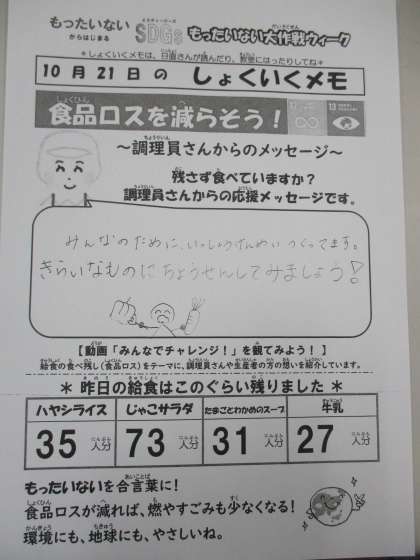 もったいない
からはじまる
SDGs
もったいない大作戦ウィーク
＊しょくいくメモは、日直さんが読んだり、教室にはったりしてね＊
10月21日の しょくいくメモ
食品ロスを減らそう！
～調理員さんからのメッセージ～
残さず食べていますか？
調理員さんからの応援メッセージです。
みんなのために、いっしょうけんめいつくってます。
きらいなものにちょうせんしてみましょう！
【動画「みんなでチャレンジ！」を観てみよう！】
給食の食べ残し（食品ロス）をテーマに、調理員さんや生産者の方の想いを紹介しています。
＊ 昨日の給食はこのぐらい残りました ＊
ハヤシライス じゃこサラダ たまごとわかめのスープ 牛乳
35人分 73人分 31人分 27人分
もったいないを合言葉に！
食品ロスが減れば、燃やすごみも少なくなる！
環境にも、地球にも、やさしいね。